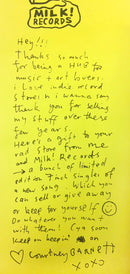 MILK!
RECORDS
Hey!!:
Thanks so much
for being a HUB for
music + art lovers.
i love indie record
stores n i wanna say
thank you for selling
my stuff over these
few years.
Here's a gift to your
rad store from me
and Milk! Records
→ a bunch of limited
edition 7inch singles of
a new song. Which you
can sell or give away
or keep for yourself
Do whatever you want
with them! Cya soon
keep on keepin' on
♡ Courtney BARNETT
XOXO